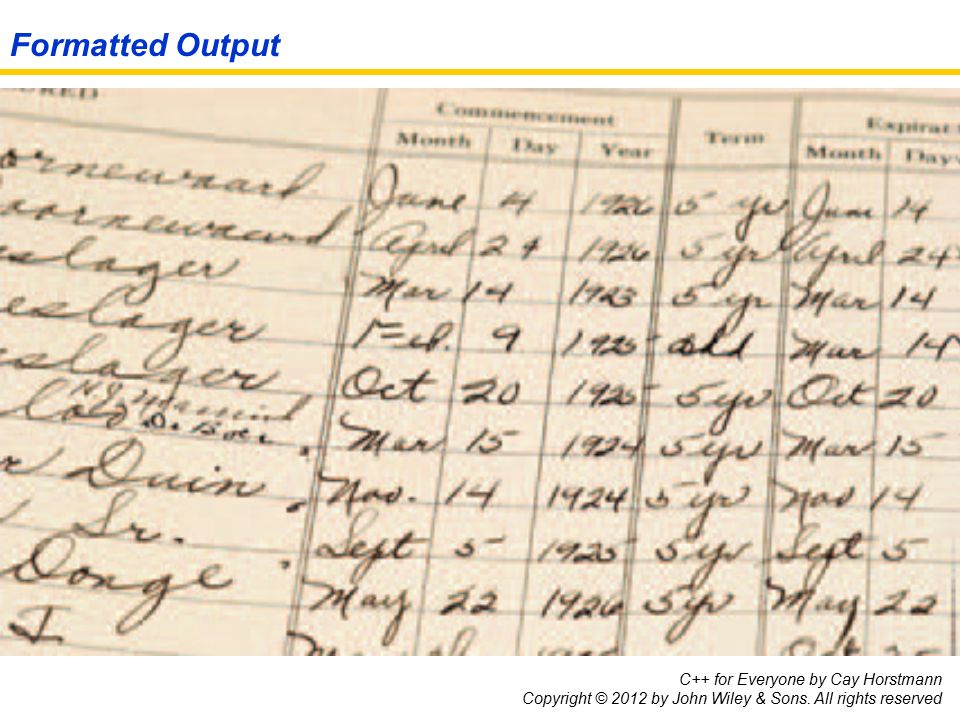 Formatted Output
Commencement
Expirat
Month Day Year Term Month Day
June 4 1926 5 yr June 14
April 24 1926 5 yr April 24
eslager Mar 14 1923 5 yr Mar 14
eslager Feb. 9 1925 Mar 14
Oct 20 1925 5 yr Oct 20
De Boer Mar 15 1924 5 yr Mar 15
Duin Nov. 14 1924 5 yr Nov 14
Sr. Sept 5 1925 5 yr Sept 5
Donge May 22 1926 5 yr May 22
I
C++ for Everyone by Cay Horstmann
Copyright © 2012 by John Wiley & Sons. All rights reserved